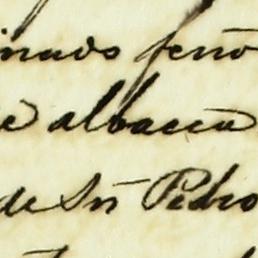 inados
e albacea
de Sn Pedro